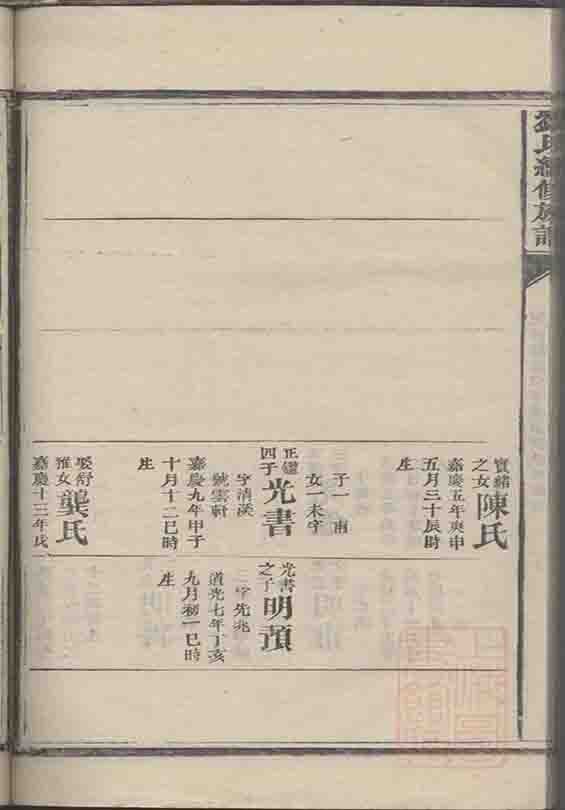 氏續修族譜
實緒
之女
陳氏
嘉慶五年庚申
五月三十辰時
生
子一
女一未字
正鑑
四子
光書
字清溪
號雲軒
嘉慶九年甲子
十月十二巳時
生
娶舒
雅女
龔氏
嘉慶十三年戊
光書
之子
明頊
字先兆
道光七年丁亥
九月初一巳時
生